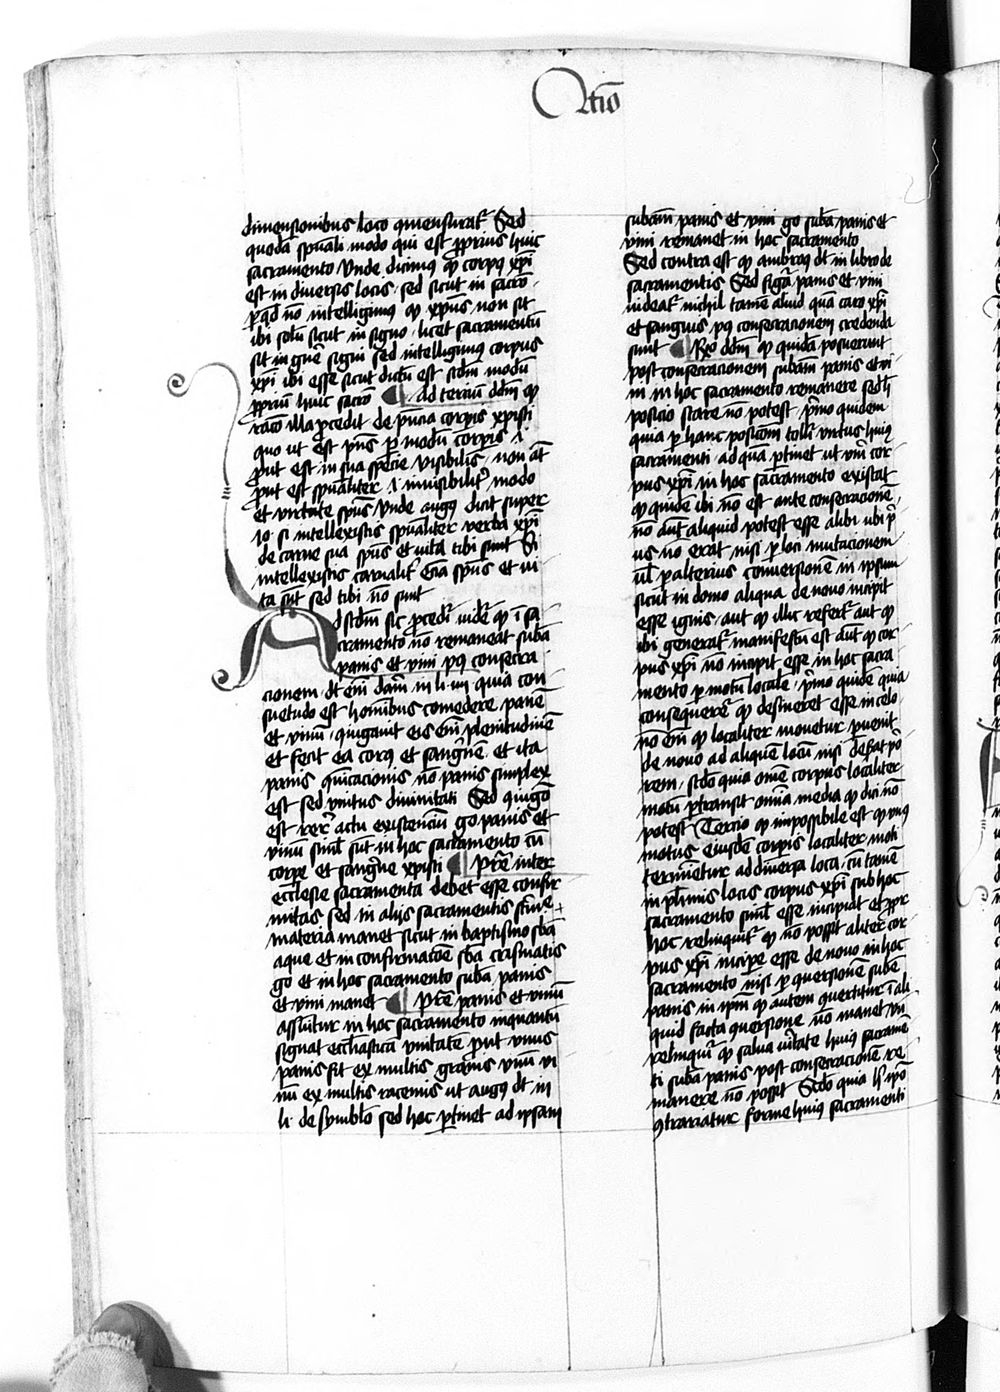 Q̅tio
dimensionibus loco cōmensurat᷑ Sed
quodā spūali modo qui est ꝓprius huic
sacramento Vnde dicimus ꝙ corpꝰ xp̄i
est in diuersis locis sed sicut in sacrō
ꝑ qd̄ nō intelligimus ꝙ xp̄us non sit
ibi solū sicut in signo licet sacramentū
sit in gn̄e signi sed intelligimꝰ corpus
xp̄i ibi esse sicut dictū est scdm modū
ꝓpriū huic sacrō ¶ ad terciū dd̄m ꝙ
racō illa ꝓcedit de p̄ncia corꝑis xpisti
quo ut est p̄ns ꝑ modū corꝑis .i.
ꝓut est in sua specie visibilis non aūt
ꝓut est spūaliter .i. inuisibilit᷑ modo
et virtute spūs Vnde augꝰ dicit super
Jo. si intellexistis spūaliter verba xp̄i
de carne sua spūs et vita tibi sunt Si
intellexistis carnalit᷑ eciā spūs et vi
ta sūt sed tibi nō sunt
Ad scdm̄ sic ꝓcedit᷑ videt᷑ ꝙ ī sa
cramento nō remaneat subā
panis et vini pꝰ consecra
cionem. dt eni dam̄ in li. iiii quia con
suetudo est hominibus comedere panē
et vinū ꝯiugauit eis enī plenitudinē
et fecit ea corpꝰ et sanguinē. et ita
panis ꝯicacionis nō panis simplex
est sed vnitus diuinitati Sed ꝯiugō
est rerꝝ actu existenciū go panis et
vinū siml̄ sūt in hoc sacramento cū
corꝑe et sangne xpisti ¶ Prē inter
ecclesie sacramenta debet esse confor
mitas sed in alijs sacramentis
materia manet sicut in baptismo sba
aque et in confirmacōe sba crismatis
go et in hoc sacramento subā panis
et vini manet ¶ Prē panis et vinū
assūtur in hoc sacramento inquantū
signāt ecclīasticā vnitatē ꝓut vnus
panis fit ex multis granis vnū vi
nū ex multis racemis ut augꝰ dt in
li. de symbolo sed hoc ꝑtinet ad ipsam
subām panis et vini go subā panis et
vini remanet in hoc sacramento
Sed contra est ꝙ ambroꝰ dt in libro de
sacramentis Sed figā panis et vini
videat᷑ nichil tamē aliud quā caro xp̄i
et sanguis pꝰ consecracionem credenda
sunt ¶ Rn̄o dd̄m ꝙ quidā posuerunt
post consecracionem subām panis et vi
ni in hoc sacramento remanere sed h̄
posicio stare nō potest pͥmo quidem
quia ꝑ hanc posicōm tollit᷑ virtus huiꝰ
sacramenti ad quā ꝑtinet ut vm̄ cor
pus xp̄i in hoc sacramento existat
ꝙ quidē ibi nō est ante consecracionē
nō aūt aliquid potest esse alibi ubi pͥ
us nō erat nisi ꝑ loci mutacionem
ul̄ ꝑ alterius conuersionē in ipsum
sicut in domo aliqua de nouo incipit
esse ignis aut ꝙ illic refert᷑ aut ꝙ
ibi generat᷑ manifestū est aūt ꝙ cor
pus xp̄i nō incipit esse in hoc sacra
mento ꝑ motū localē pͥmo quidē quia
consequeret᷑ ꝙ desineret esse in celo
nō enī ꝙ localiter mouetur ꝑuenit
de nouo ad aliquē locū nisi deserat pͥo
rem. scdō quia omē corpus localiter
motū ꝑtransit omīa media ꝙ dici nō
potest Tercio ꝙ impossibile est ꝙ vnꝰ
motus eiusdē corꝑis localiter moti
terminetur ad diuersa loca cū tamē
in plrimis locis corpus xp̄i sub hoc
sacramento siml̄ esse incipiat et ꝓpt᷑
hoc relinquit᷑ ꝙ nō possit aliter cor
pus xp̄i incipe esse de nouo in hoc
sacramento nisi ꝑ ꝯuersionē sube
panis in ipm̄ ꝙ autem ꝯuertitur ī ali
quid facta ꝯuersione nō manet vn̄
relinquit᷑ ꝙ salua ūitate huiꝰ sacramē
ti subā panis post consecracionē re
manere nō possit Scdō quia h̄ ipō
ꝯtrariatur forme huiꝰ sacramenti